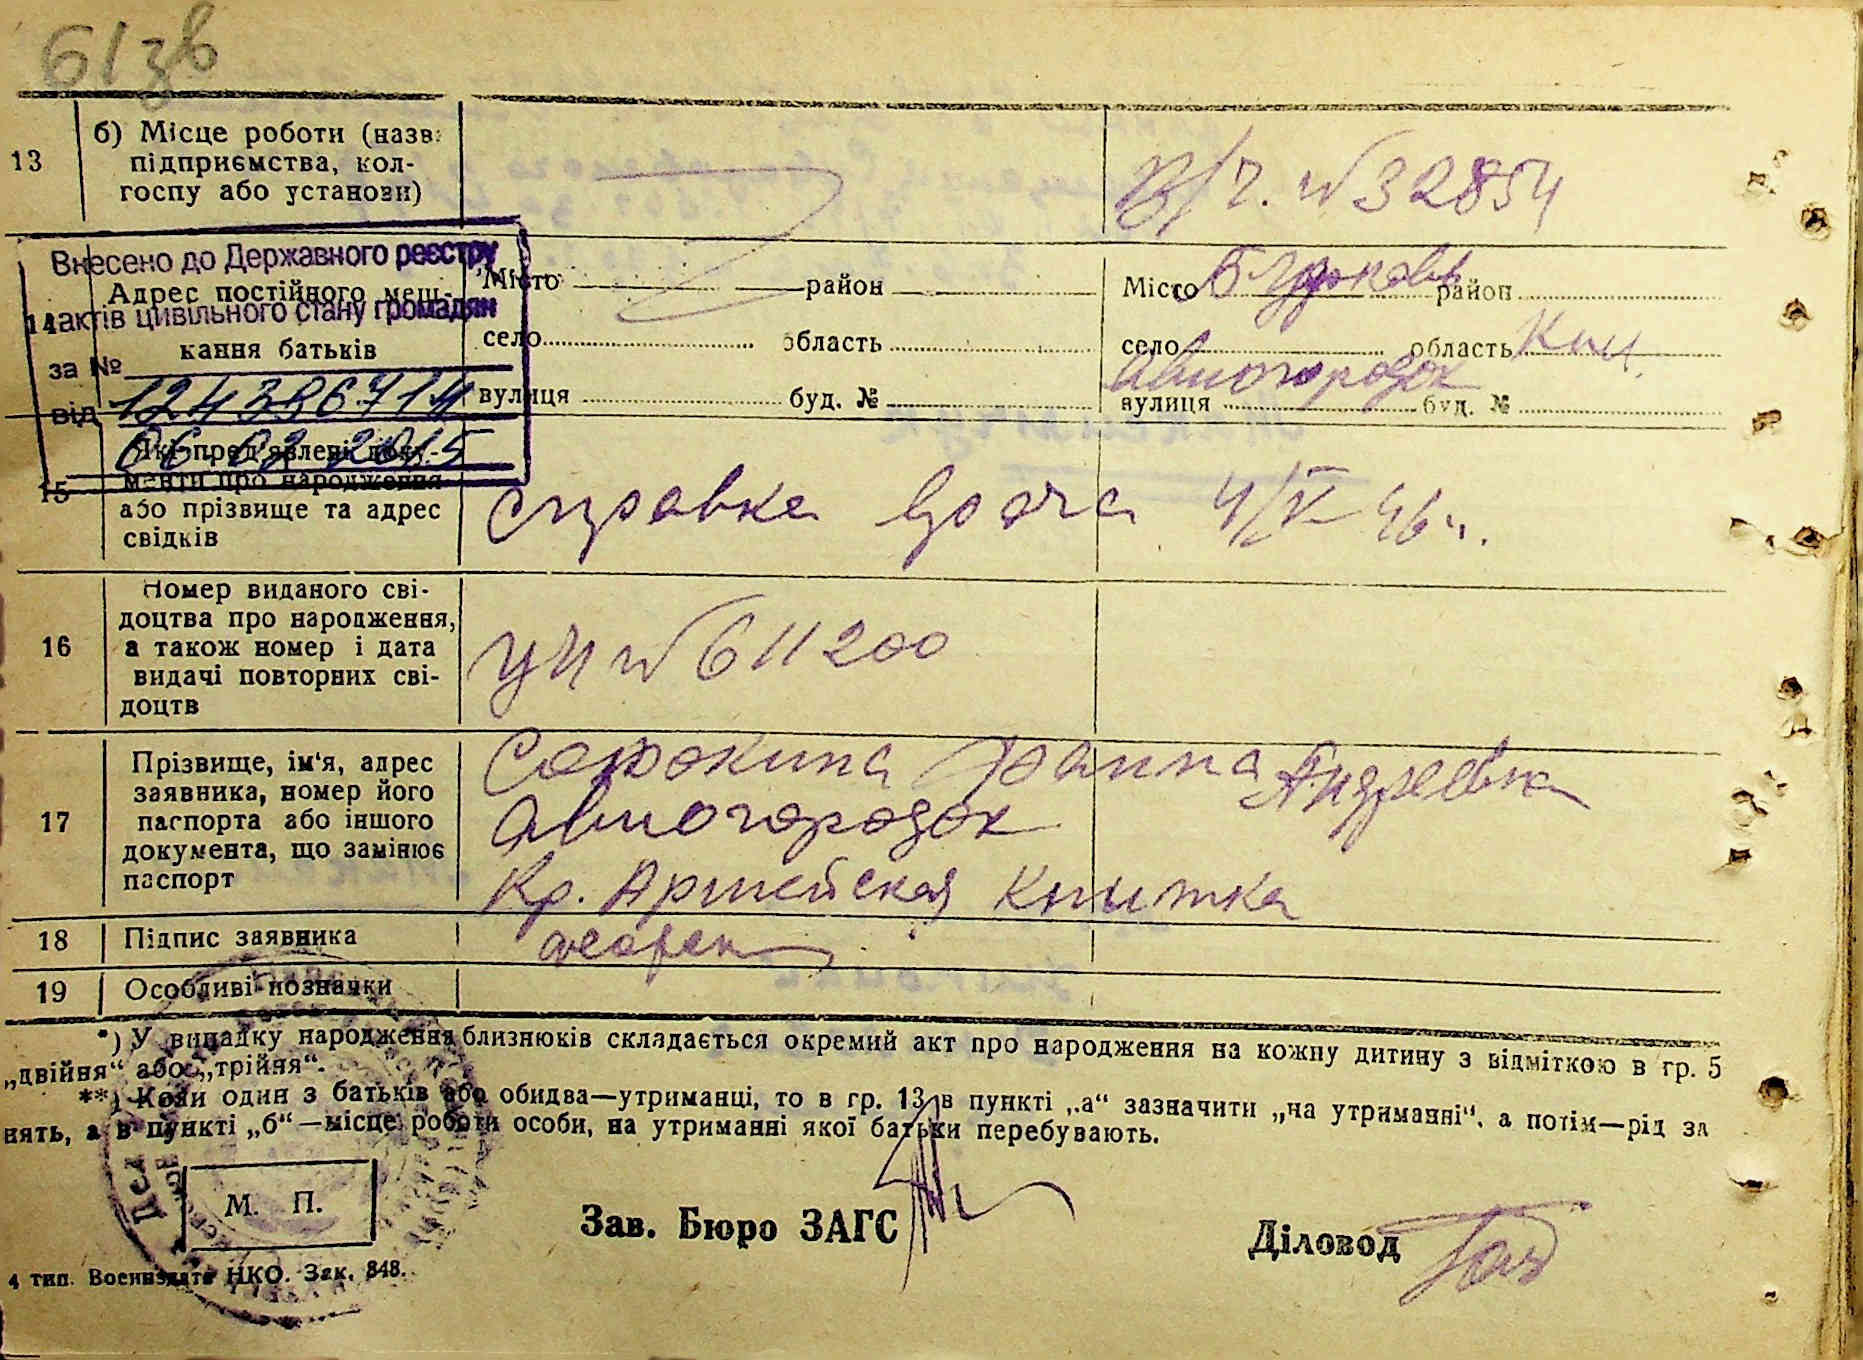 61зв
13
б) Місце роботи (назв.
підприємства, кол-
госпу або установи)
В/Ч. № 32854
Внесено до Державного реєстру
актів цивільного стану громадян
за №
124386714
від
06.02.2015
14
Адрес постійного меш-
кання батьків
Місто район
село область
вулиця буд. №
Місто район
село область Киц.
Авиогородок
вулиця буд. №
15
Які пред'явлені доку-
менти про народження
або прізвище та адрес
свідків
справка врача 4/IV 46 г.
16
Номер виданого сві-
доцтва про народження,
а також номер і дата
видачі повторних сві-
доцтв
УЧ № 611200
17
Прізвище, ім'я, адрес
заявника, номер його
паспорта або іншого
документа, що замінює
паспорт
Сорокина Жанна Андреевна
Авиогородок
Кр. Армейская книжка
18
Підпис заявника
19
Особливі позначки
*) У випадку народження близнюків складається окремий акт про народження на кожну дитину з відміткою в гр. 5
„двійня“ або „трійня“.
**) Коли один з батьків або обидва—утриманці, то в гр. 13 в пункті „а“ зазначити „на утриманні“, а потім—рід за
нять, а в пункті „б“—місце роботи особи, на утриманні якої батьки перебувають.
М. П.
Зав. Бюро ЗАГС
Діловод
4 тип. Воениздата НКО. Зак. 848.